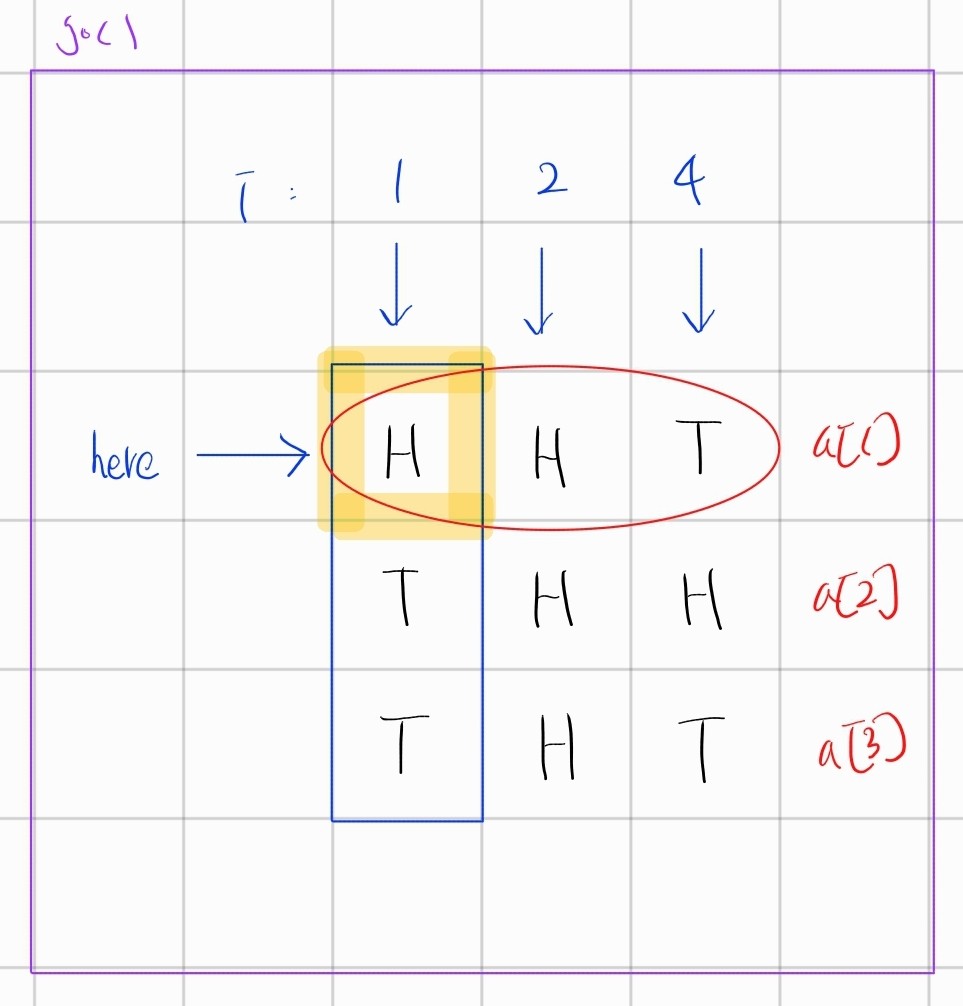 T : 1 2 4
here H H T a[1]
T H H a[2]
T H T a[3]